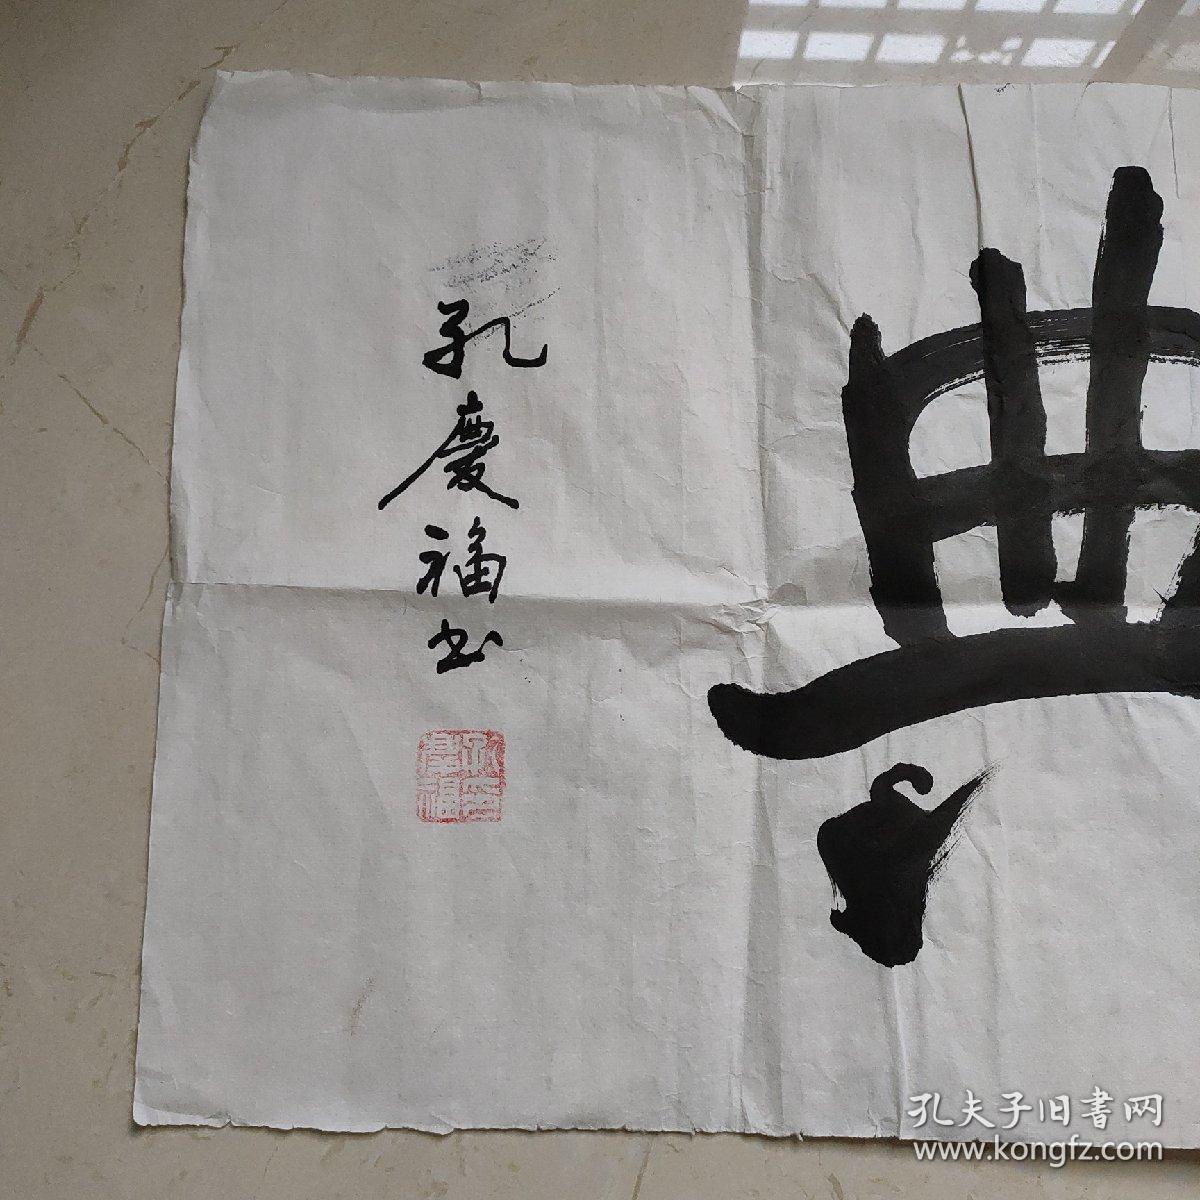 典
孔慶福书
孔夫子旧書网
www.kongfz.com